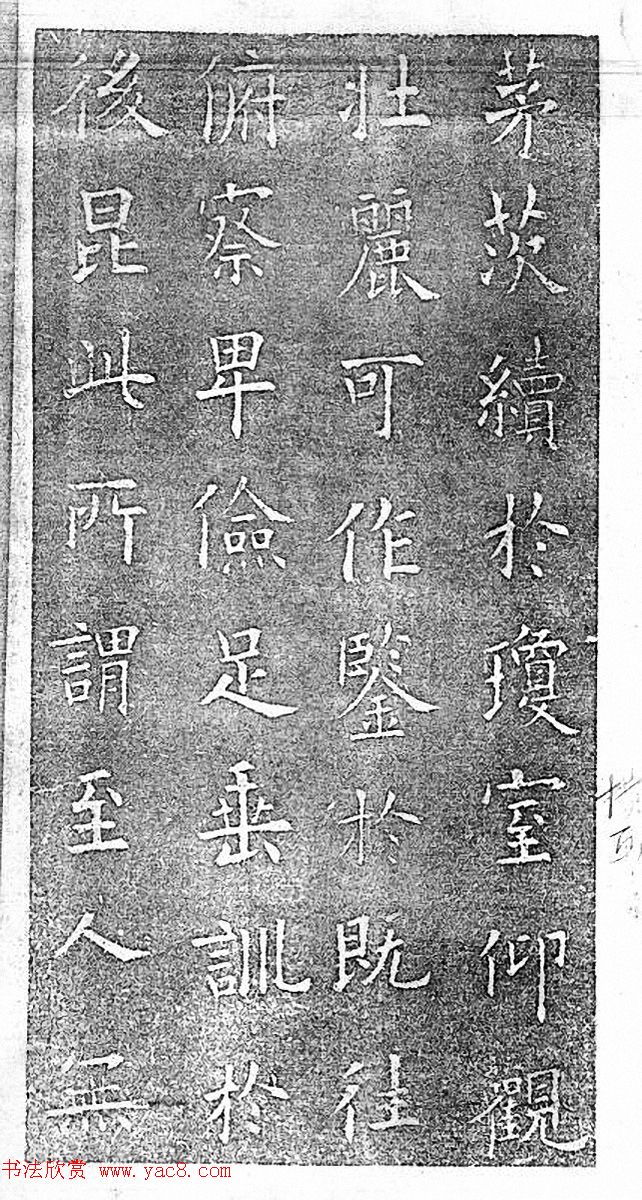 茅茨續於瓊室仰觀
壯麗可作鑒於既往
俯察卑儉足垂訓於
後昆此所謂至人無
书法欣赏 www.yac8.com